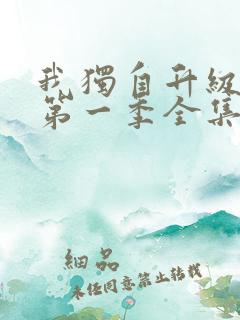 我獨自升級
第一季全集
細品
未经同意禁止转载